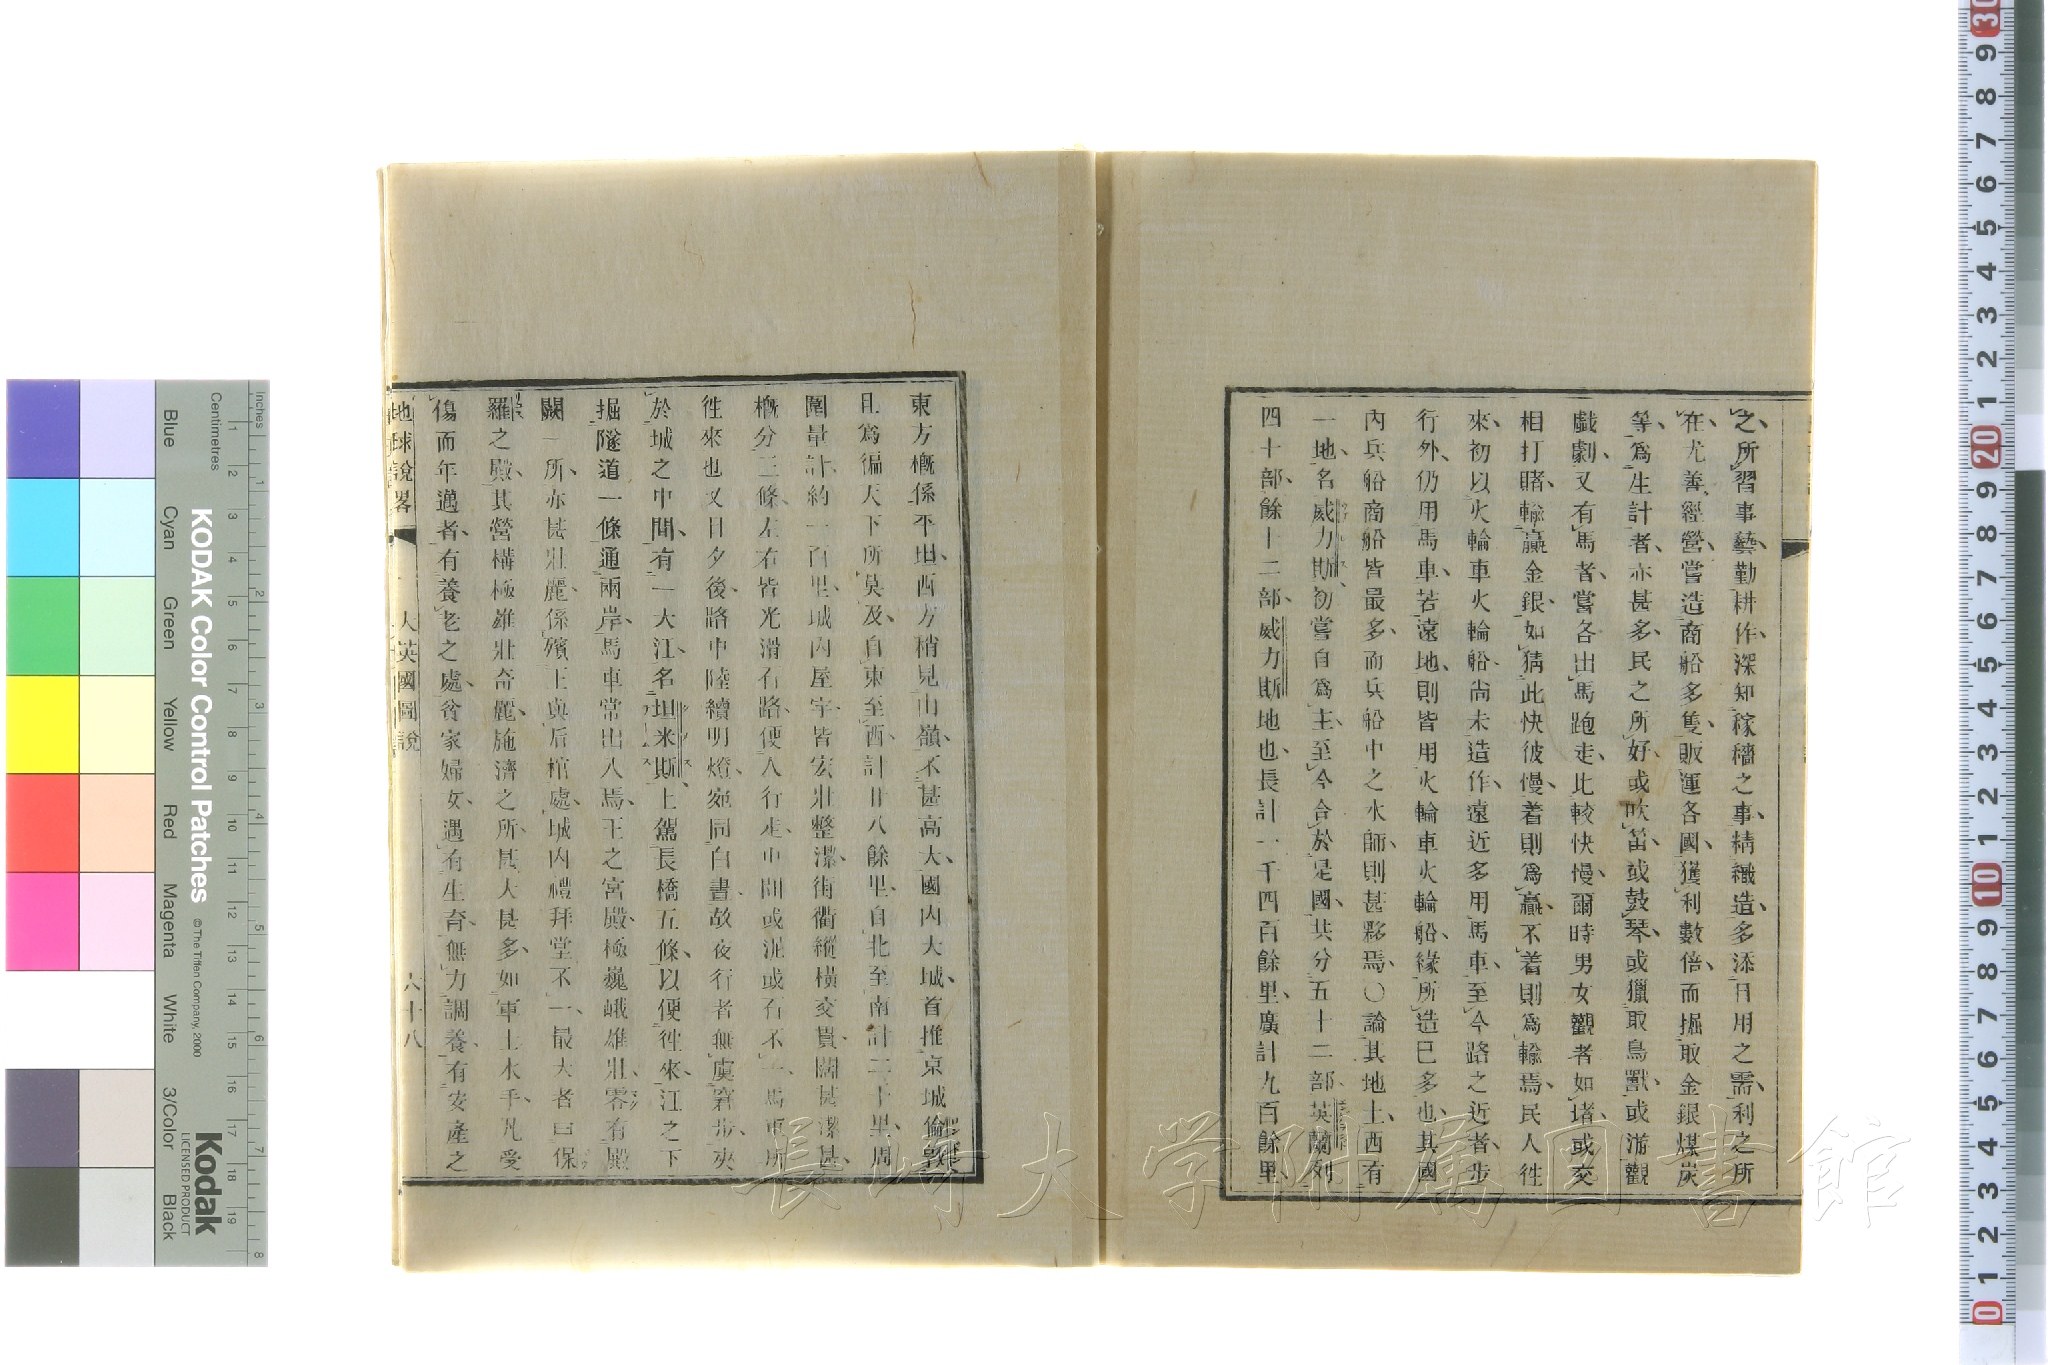 之所習事藝勤耕作深知稼穡之事精織造多添日用之需利之所
在尤善經營嘗造商船多隻販運各國獲利數倍而掘取金銀煤炭
等爲生計者亦甚多民之所好或吹笛或鼓琴或獵取鳥獸或游觀
戲劇又有馬者嘗各出馬跑走比較快慢爾時男女觀者如堵或交
相打賭輸贏金銀如猜此快彼慢着則爲贏不着則爲輸焉民人徃
來初以火輪車火輪船尚未造作遠近多用馬車至今路之近者步
行外仍用馬車若遠地則皆用火輪車火輪船緣所造已多也其國
內兵船商船皆最多而兵船中之水師則甚夥焉〇論其地土西有
一地名威力斯初嘗自爲主至今合於是國共分五十二部英蘭列
四十部餘十二部威力斯地也長計一千四百餘里廣計九百餘里
東方概係平坦西方稍見山嶺不甚高大國內大城首推京城倫敦
且爲徧天下所莫及自東至西計廿八餘里自北至南計二十里周
圍量計約一百里城內屋宇皆宏壯整潔街衢縱橫交貫闊甚潔甚
概分三條左右皆光滑石路便人行走中間或泥或石不一馬車所
徃來也又日夕後路中陸續明燈宛同白晝故夜行者無虞窘步夾
於城之中間有一大江名坦米斯上駕長橋五條以便徃來江之下
掘隧道一條通兩岸馬車常出入焉王之宮殿極巍峨雄壯零有殿
闕一所亦甚壯麗係殯王與后棺處城內禮拜堂不一最大者曰保
羅之殿其營構極雄壯奇麗施濟之所甚大甚多如軍士水手凡受
傷而年邁者有養老之處貧家婦女遇有生育無力調養有安產之
地球說畧
大英國圖說
六十八
長崎大学附属図書館
KODAK Color Control Patches
© The Tiffen Company, 2000
Kodak
LICENSED PRODUCT
Blue Cyan Green Yellow Red Magenta White 3/Color Black
Centimetres
Inches